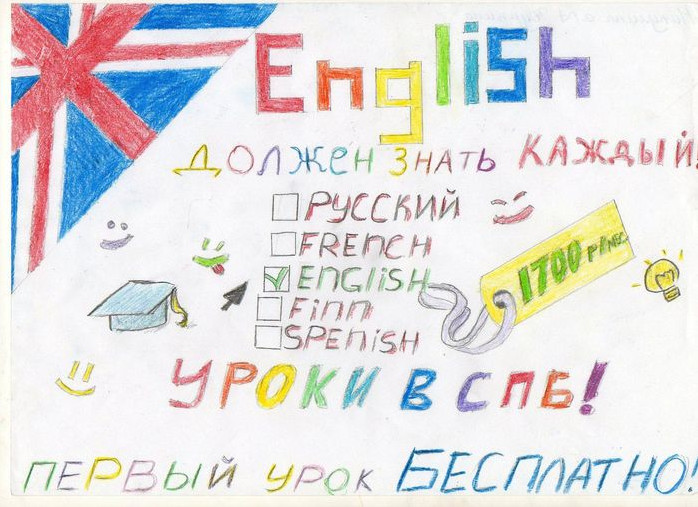 English
ДОЛЖЕН ЗНАТЬ КАЖДЫЙ!
РУССКИЙ
FRENCH
ENGLiSH
FiNN
SPENiSH
1700 Р/МЕС
УРОКИ В СПБ!
ПЕРВЫЙ УРОК БЕСПЛАТНО!